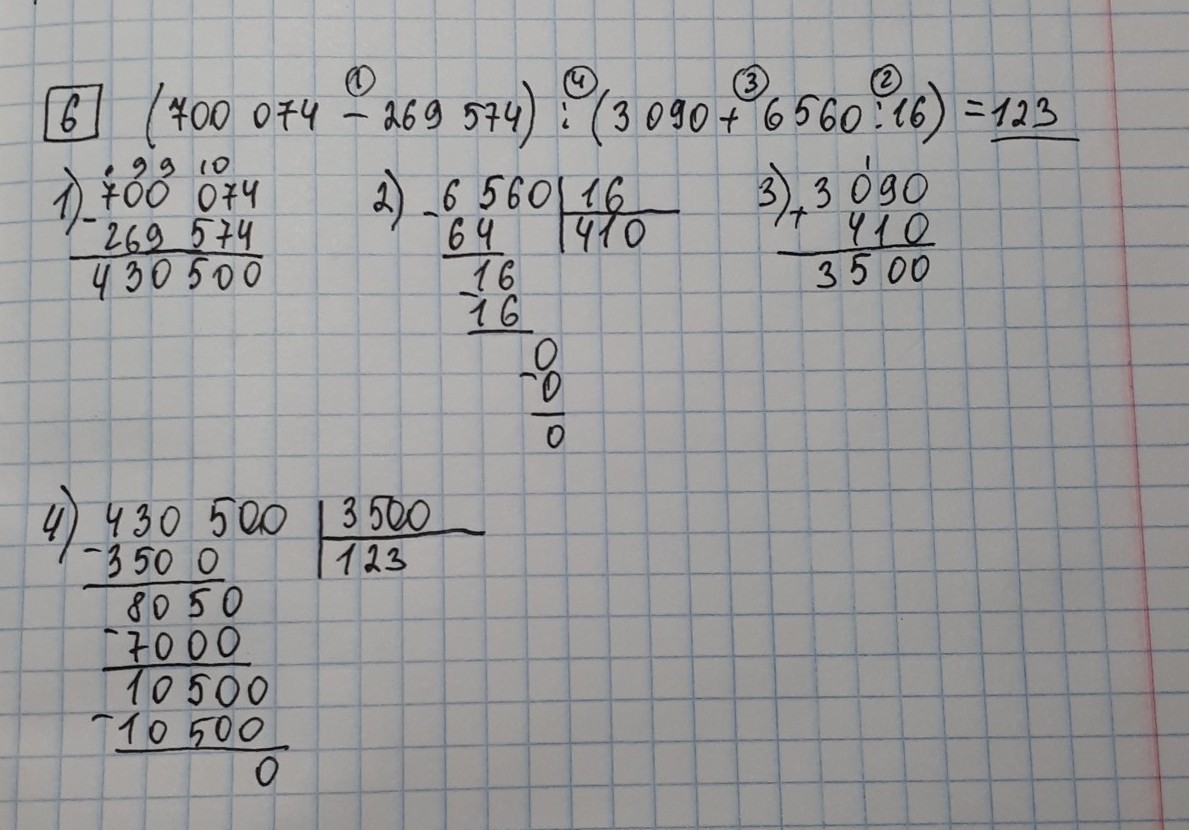 ① ④ ③ ②
6 (700 074 - 269 574) : (3 090 + 6 560 : 16) = 123
. 9 9 10
1) 700 074
- 269 574
430 500
2) - 6 560 | 16
64 | 410
16
- 16
0
- 0
0
1
3) + 3 090
410
3 500
4) - 430 500 | 3500
350 0 | 123
8050
- 7000
10500
- 10500
0